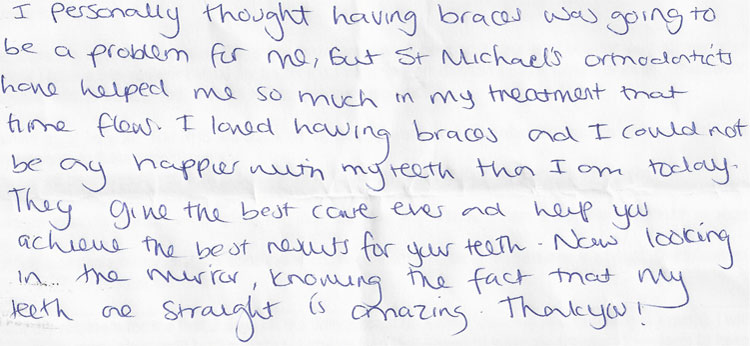 I personally thought having braces was going to
be a problem for me, but St Michael's ormodontics
have helped me so much in my treatment that
time flew. I loved having braces and I could not
be any happier with my teeth than I am today.
They give the best care ever and help you
achieve the best results for your teeth. Now looking
in the mirror, knowing the fact that my
teeth are straight is amazing. Thankyou!